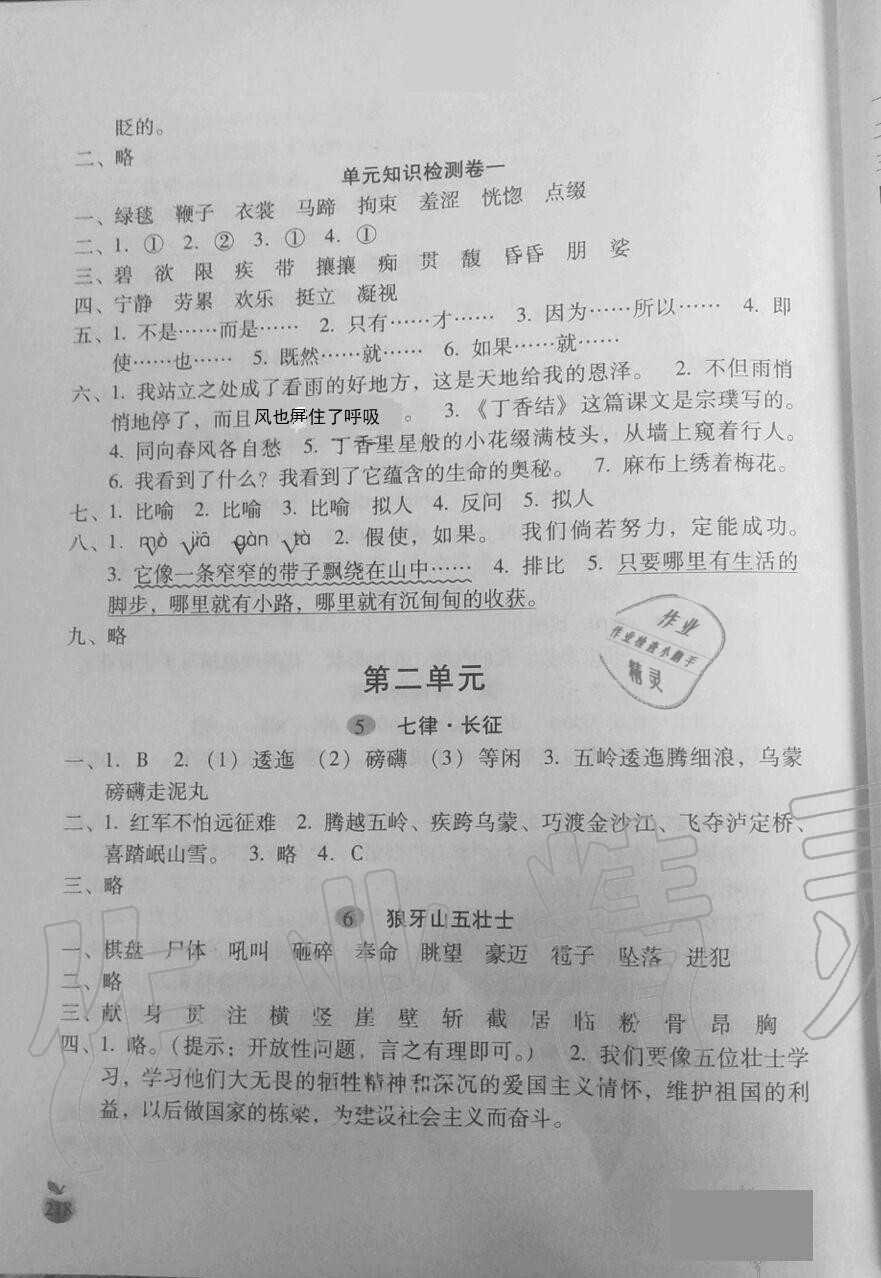 眨的。
二、略
单元知识检测卷一
一、绿毯 鞭子 衣裳 马蹄 拘束 羞涩 恍惚 点缀
二、1. ① 2. ② 3. ① 4. ①
三、碧 欲 限 疾 带 攘攘 痴 贯 馥 昏昏 朋 娑
四、宁静 劳累 欢乐 挺立 凝视
五、1. 不是……而是…… 2. 只有……才…… 3. 因为……所以…… 4. 即
使……也…… 5. 既然……就…… 6. 如果……就……
六、1. 我站立之处成了看雨的好地方，这是天地给我的恩泽。 2. 不但雨悄
悄地停了，而且风也屏住了呼吸。 3.《丁香结》这篇课文是宗璞写的。
4. 同向春风各自愁 5. 丁香星星般的小花缀满枝头，从墙上窥着行人。
6. 我看到了什么？我看到了它蕴含的生命的奥秘。 7. 麻布上绣着梅花。
七、1. 比喻 2. 比喻 3. 比喻 拟人 4. 反问 5. 拟人
八、1. mò jiā gàn tà 2. 假使，如果。 我们倘若努力，定能成功。
3. 它像一条窄窄的带子飘绕在山中…… 4. 排比 5. 只要哪里有生活的
脚步，哪里就有小路，哪里就有沉甸甸的收获。
九、略
作业
作业检查小助手
精灵
第二单元
5 七律·长征
一、1. B 2.（1）逶迤（2）磅礴（3）等闲 3. 五岭逶迤腾细浪，乌蒙
磅礴走泥丸
二、1. 红军不怕远征难 2. 腾越五岭、疾跨乌蒙、巧渡金沙江、飞夺泸定桥、
喜踏岷山雪。 3. 略 4. C
三、略
6 狼牙山五壮士
一、棋盘 尸体 吼叫 砸碎 奉命 眺望 豪迈 雹子 坠落 进犯
二、略
三、献 身 贯 注 横 竖 崖 壁 斩 截 居 临 粉 骨 昂 胸
四、1. 略。（提示：开放性问题，言之有理即可。） 2. 我们要像五位壮士学
习，学习他们大无畏的牺牲精神和深沉的爱国主义情怀，维护祖国的利
益，以后做国家的栋梁，为建设社会主义而奋斗。
218